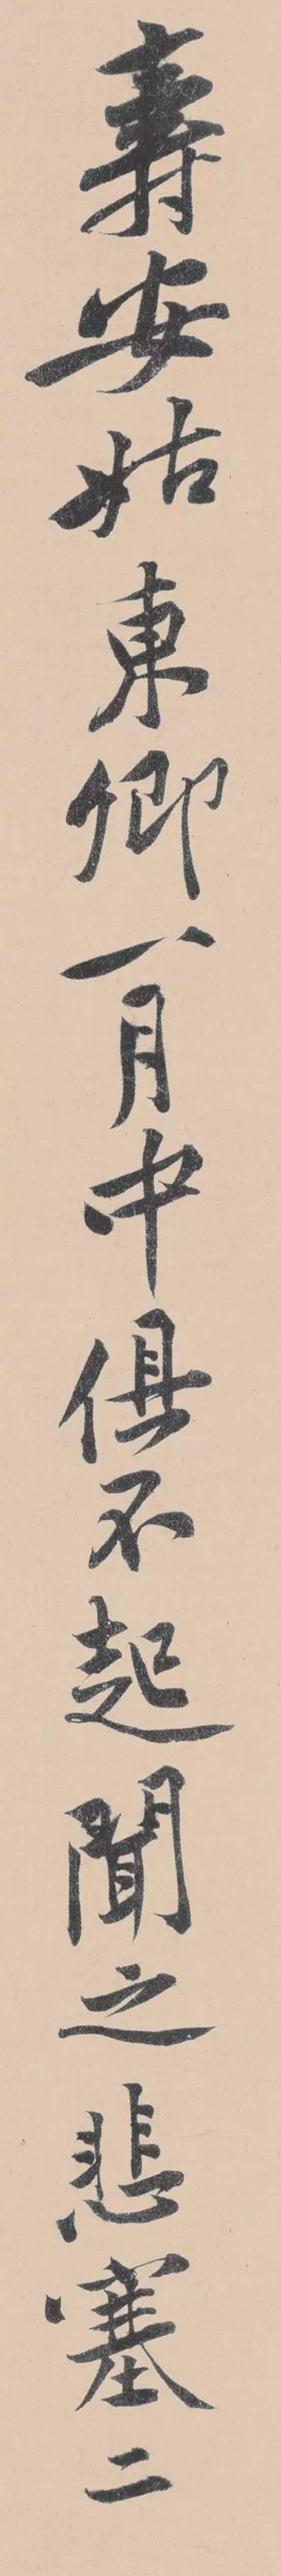 壽安姑東卿一月中俱不起聞之悲塞二